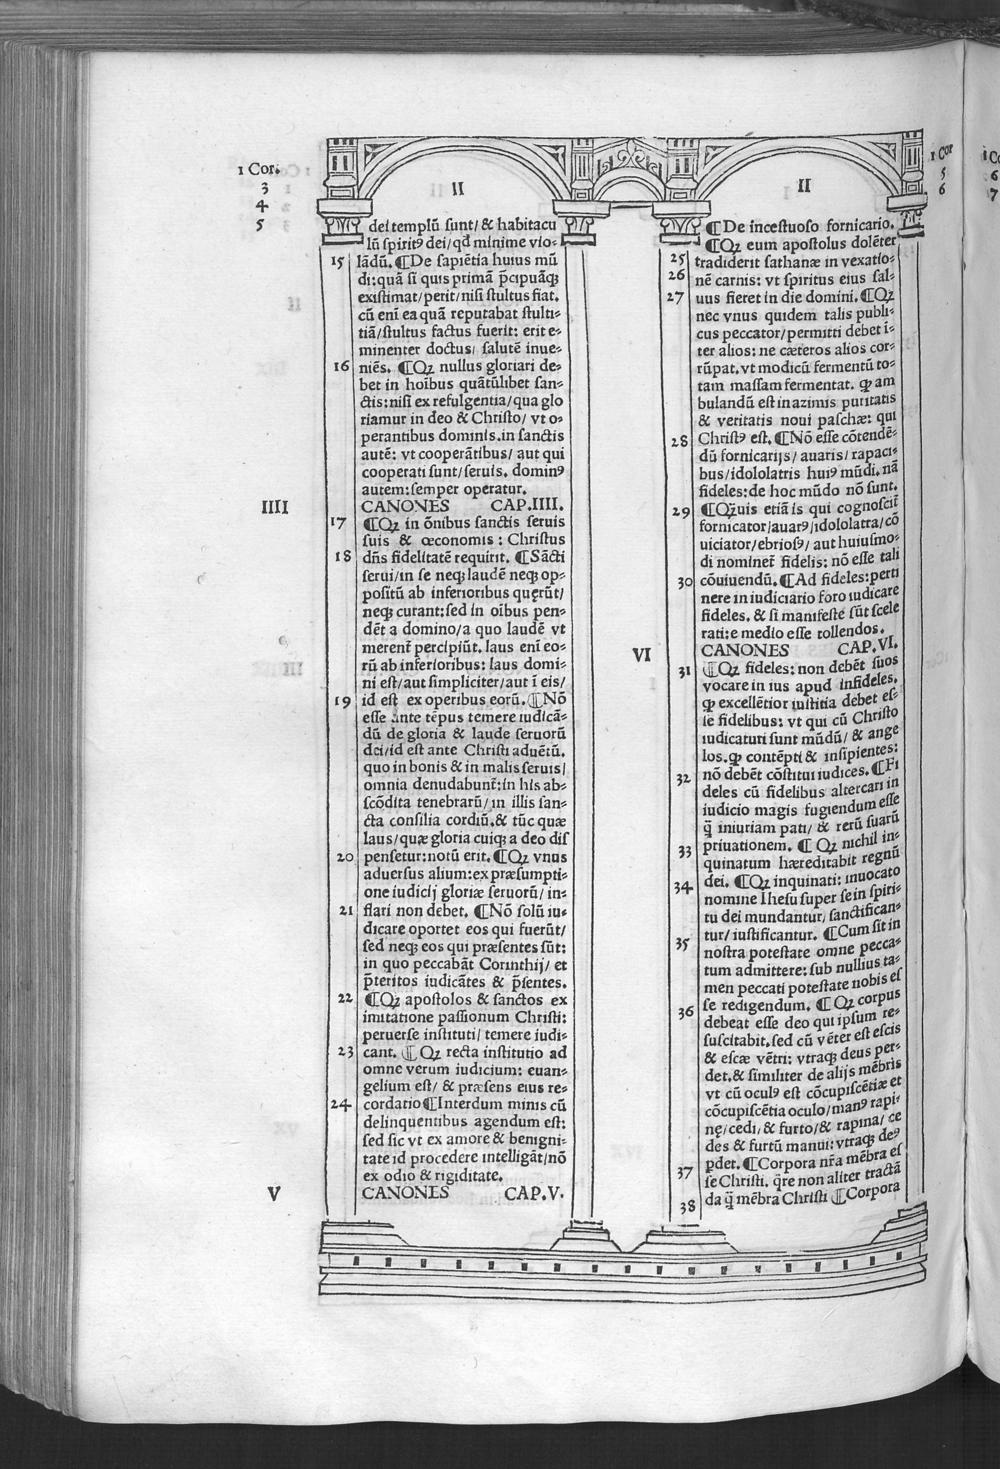 1 Cor.
3
4
5
II
dei templũ sunt/ & habitacu
lũ spiritꝰ dei/ qd̃ minime vio⸗
15 lãdũ. ¶De sapiẽtia huius mũ
di: quã si quis primã p̃cipuãqꝫ
existimat/ perit/ nisi stultus fiat.
cũ eni ea quã reputabat stulti⸗
tiã/ stultus factus fuerit: erit e⸗
minenter doctus/ salutẽ inue⸗
16 niẽs. ¶Qꝫ nullus gloriari de⸗
bet in hoibus quãtũlibet san⸗
ctis: nisi ex refulgentia/ qua glo
riamur in deo & Christo/ vt o⸗
perantibus dominis. in sanctis
autẽ: vt cooperãtibus/ aut qui
cooperati sunt/ seruis. dominꝰ
autem: semper operatur.
IIII
CANONES CAP.IIII.
17 ¶Qꝫ in õnibus sanctis seruis
suis & œconomis : Christus
18 dñs fidelitatẽ requirit. ¶Sãcti
serui/ in se neqꝫ laudẽ neqꝫ op⸗
positũ ab inferioribus quęrũt/
neqꝫ curant: sed in oĩbus pen⸗
dẽt a domino/ a quo laudẽ vt
merent̃ percipiũt. laus eni eo⸗
rũ ab inferioribus: laus domi⸗
ni est/ aut simpliciter/ aut ĩ eis/
19 id est ex operibus eorũ. ¶Nõ
esse ante tẽpus temere iudicã⸗
dũ de gloria & laude seruorũ
dei/ id est ante Christi aduẽtũ.
quo in bonis & in malis seruis/
omnia denudabunt̃: in his ab⸗
scõdita tenebrarũ/ in illis san⸗
cta consilia cordiũ. & tũc quæ
laus/ quæ gloria cuiqꝫ a deo dis
20 pensetur: notũ erit. ¶Qꝫ vnus
aduersus alium: ex præsumpti⸗
one iudicij gloriæ seruorũ/ in⸗
21 flari non debet. ¶Nõ solũ iu⸗
dicare oportet eos qui fuerũt/
sed neqꝫ eos qui præsentes sũt:
in quo peccabãt Corinthij/ et
p̃teritos iudicãtes & p̃sentes.
22 ¶Qꝫ apostolos & sanctos ex
imitatione passionum Christi:
peruerse instituti/ temere iudi⸗
23 cant. ¶Qꝫ recta institutio ad
omne verum iudicium: euan⸗
gelium est/ & præsens eius re⸗
24 cordatio ¶Interdum minis cũ
delinquentibus agendum est:
sed sic vt ex amore & benigni⸗
tate id procedere intelligãt/ nõ
ex odio & rigiditate.
V
CANONES CAP.V.
1 Cor
5
6
II
¶De incestuoso fornicario.
¶Qꝫ eum apostolus dolẽter
25 tradiderit sathanæ in vexatio⸗
26 nẽ carnis: vt spiritus eius sal⸗
27 uus fieret in die domini. ¶Qꝫ
nec vnus quidem talis publi⸗
cus peccator/ permitti debet ĩ⸗
ter alios: ne cæteros alios cor⸗
rũpat. vt modicũ fermentũ to⸗
tam massam fermentat. ꝙ am
bulandũ est in azimis puritatis
& veritatis noui paschæ: qui
28 Christꝰ est. ¶Nõ esse cõtendẽ⸗
dũ fornicarijs/ auaris/ rapaci⸗
bus/ idololatris huiꝰ mũdi. nã
fideles: de hoc mũdo nõ sunt.
29 ¶Qq̃uis etiã is qui cognoscit̃
fornicator/ auarꝰ/ idololatra/ cõ
uiciator/ ebriosꝰ/ aut huiusmo⸗
di nominet̃ fidelis: nõ esse tali
30 cõuiuendũ. ¶Ad fideles: perti
nere in iudiciario foro iudicare
fideles. & si manifeste sũt scele
rati: e medio esse tollendos.
VI
CANONES CAP.VI.
31 ¶Qꝫ fideles: non debẽt suos
vocare in ius apud infideles.
ꝙ excellẽtior iustitia debet es⸗
se fidelibus: vt qui cũ Christo
iudicaturi sunt mũdũ/ & ange
los. ꝙ contẽpti & insipientes:
32 nõ debẽt cõstitui iudices. ¶Fi
deles cũ fidelibus altercari in
iudicio magis fugiendum esse
q̃ iniuriam pati/ & rerũ suarũ
33 priuationem. ¶Qꝫ nichil in⸗
quinatum hæreditabit regnũ
34 dei. ¶Qꝫ inquinati: inuocato
nomine Ihesu super se in spiri⸗
tu dei mundantur/ sanctifican⸗
tur/ iustificantur. ¶Cum sit in
35 nostra potestate omne pecca⸗
tum admittere: sub nullius ta⸗
men peccati potestate nobis es
se redigendum. ¶Qꝫ corpus
36 debeat esse deo qui ipsum re⸗
suscitabit. sed cũ vẽter est escis
& escæ vẽtri: vtraqꝫ deus per⸗
det. & similiter de alijs mẽbris
vt cũ oculꝰ est cõcupiscẽtiæ et
cõcupiscẽtia oculo/ manꝰ rapi⸗
nę/ cedi/ & furto/ & rapina/ ce
des & furtũ manui: vtraqꝫ deꝰ
37 pdet. ¶Corpora nr̃a mẽbra es
se Christi. q̃re non aliter tractã
38 da q̃ mẽbra Christi ¶Corpora